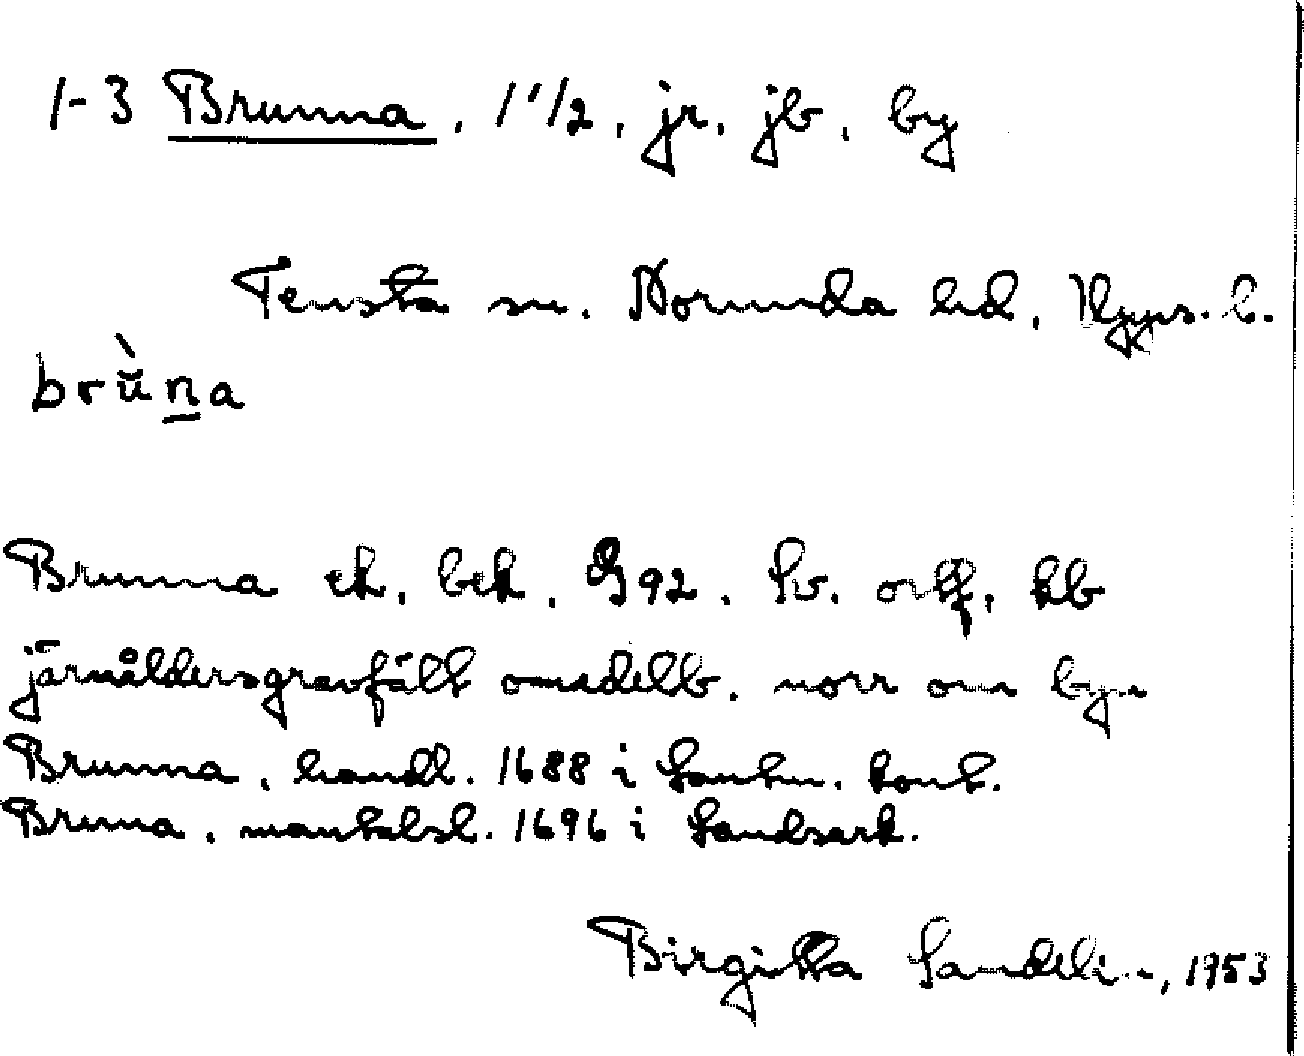 1-3 Brunna, 1 1/2, jr, jb, by
Tensta sn. Norunda hd, Upps. l.
brŭ̀n̲a
Brunna ek. bek. J 92. Sv. ortf. kb
järnåldersgravfält omedelb. norr om byn
Brunna, handl. 1688 i Lantm. kont.
Bruna, mantalsl. 1696 i Landsark.
Birgitta Sandelin, 1953